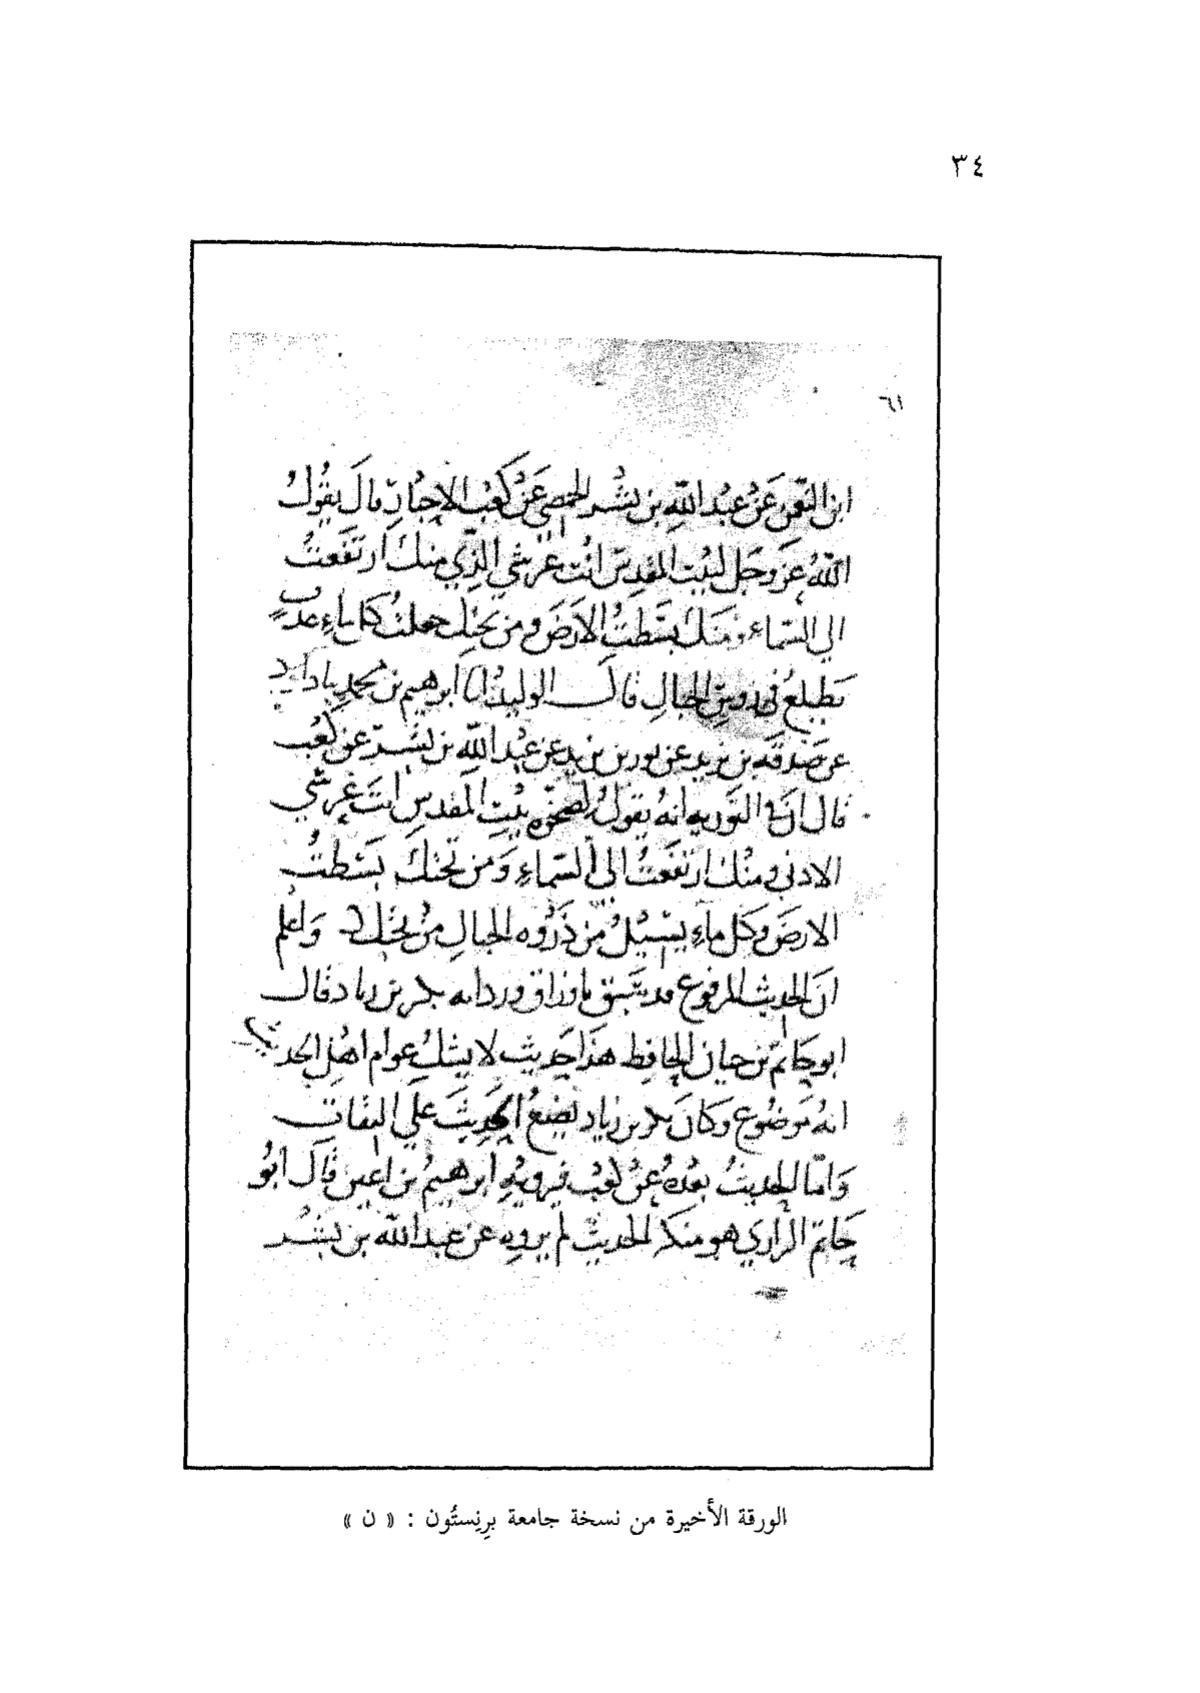 ٣٤
٦١
ابن عَنْ عبد اللّه بن بشر الحمصي عَنْ كَعْب الاحبار قال يقُولُ
اللّهُ عز وجَل لبيت المقدس انت عرشي الذي منك ارتفَعتُ
الي السّماء ومنك بسَطتُ الارضَ ومن تحتِك جعلتُ كل ماءٍ عذبٍ
يَطلعُ في رؤس الجبالِ قالَ الوليدُ ابراهيم بن محمد
عن صَدقة بن يزيد عن ثور بن يزيد عن عبد اللّه بن بشر عن كعْب
قال التورية انه يقولُ لصخرة بيْتِ المقدس انتَ عَرشي
الادني ومنْك ارتفعَتُ الي السّماءِ وَمن تحتك بسَطتُ
الارضَ وكل ماءٍ يسيلُ من ذَرْوه الجبالِ منْ تحتك وَاعلم
انَ الحديث المرفوع قد سَبق باوراق ورداته بكر بن زياد قال
ابو حَاتم بن حبان الحافظ هذَا حَديث لا يشكُ عوام اهْل الحديث
انهُ مَوضُوع وكانَ بكر بن زياد يضَعُ الحَديثَ علَي الثقات
وَامّا الحديثُ بعْدهُ عنْ كعْب فيرويهِ ابرهيمُ بن اعين قَالَ ابُو
حَاتم الرازي هو منكر الحديث لم يروه عن عبد اللّه بن بشر
الورقة الأخيرة من نسخة جامعة برِنِستُون : « ن »